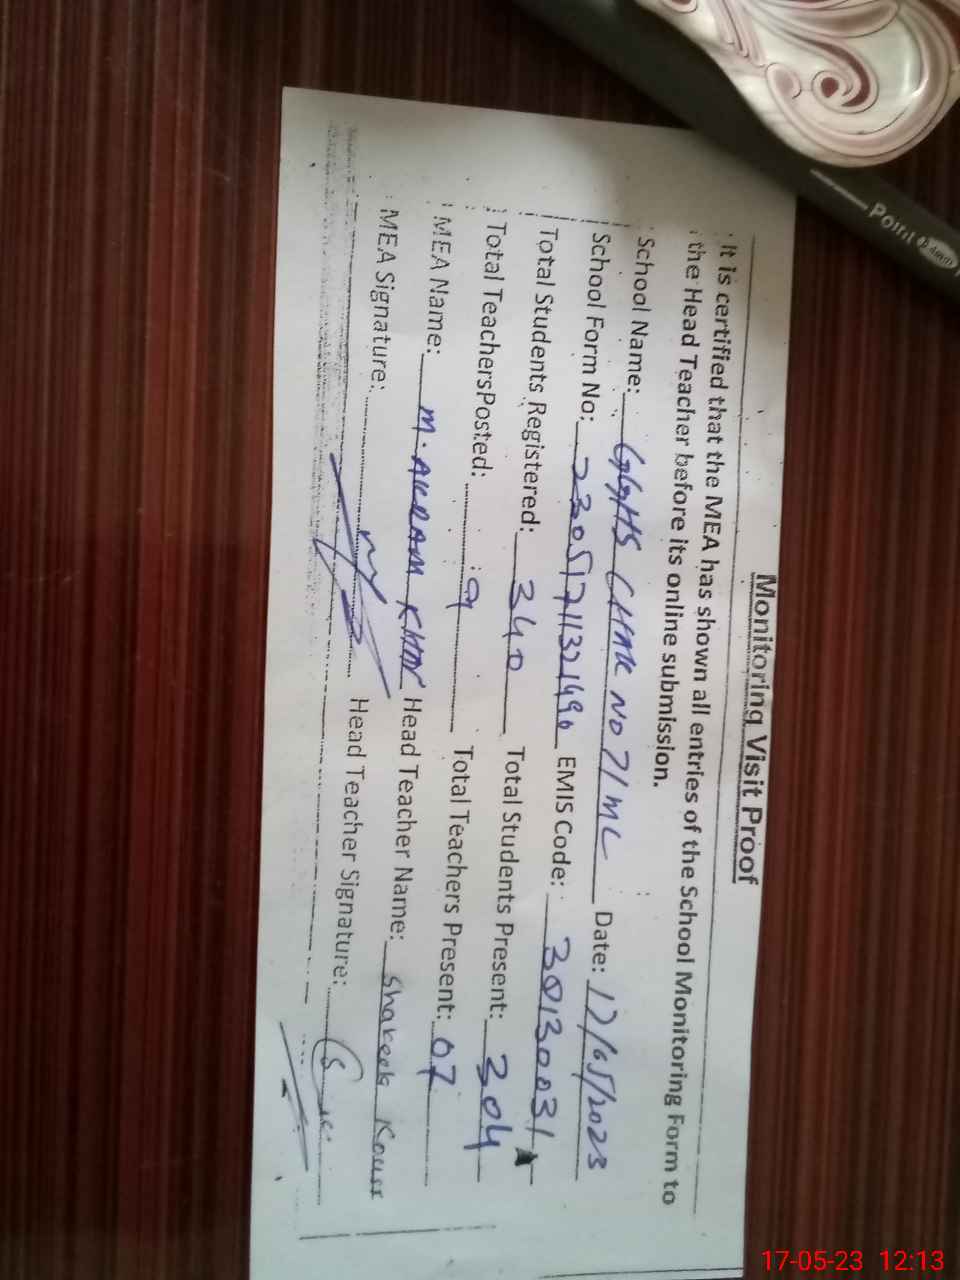 Point
Monitoring Visit Proof
It is certified that the MEA has shown all entries of the School Monitoring Form to
the Head Teacher before its online submission.
School Name: GGHS CHAK NO 71 MC Date: 17/05/2023
School Form No: EMIS Code: 30130031
Total Students Registered: 340 Total Students Present: 304
Total TeachersPosted: 9 Total Teachers Present: 07
MEA Name: M. AKRAM KHAN Head Teacher Name: Shakeela Kousr
MEA Signature: Head Teacher Signature:
17-05-23 12:13